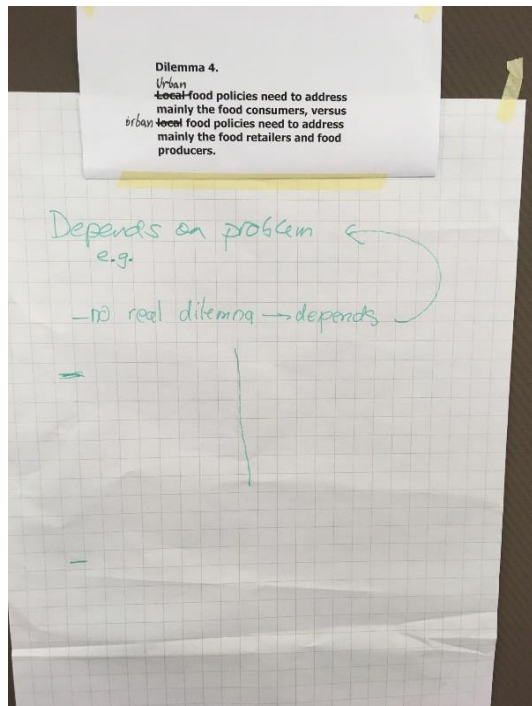 Dilemma 4.
Urban
Local food policies need to address
mainly the food consumers, versus
urban local food policies need to address
mainly the food retailers and food
producers.
Depends on problem
e.g.
- no real dilemna → depends
-
-